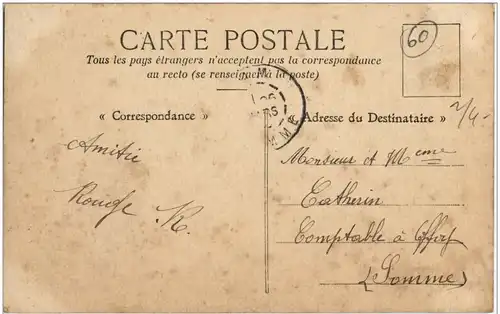 CARTE POSTALE
Tous les pays étrangers n'acceptent pas la correspondance
au recto (se renseigner à la poste)
60
2/4-
« Correspondance »
Adresse du Destinataire »
Amitié
Rouge R.
Monsieur et Meme
Catherin
Comptable à
(Somme)